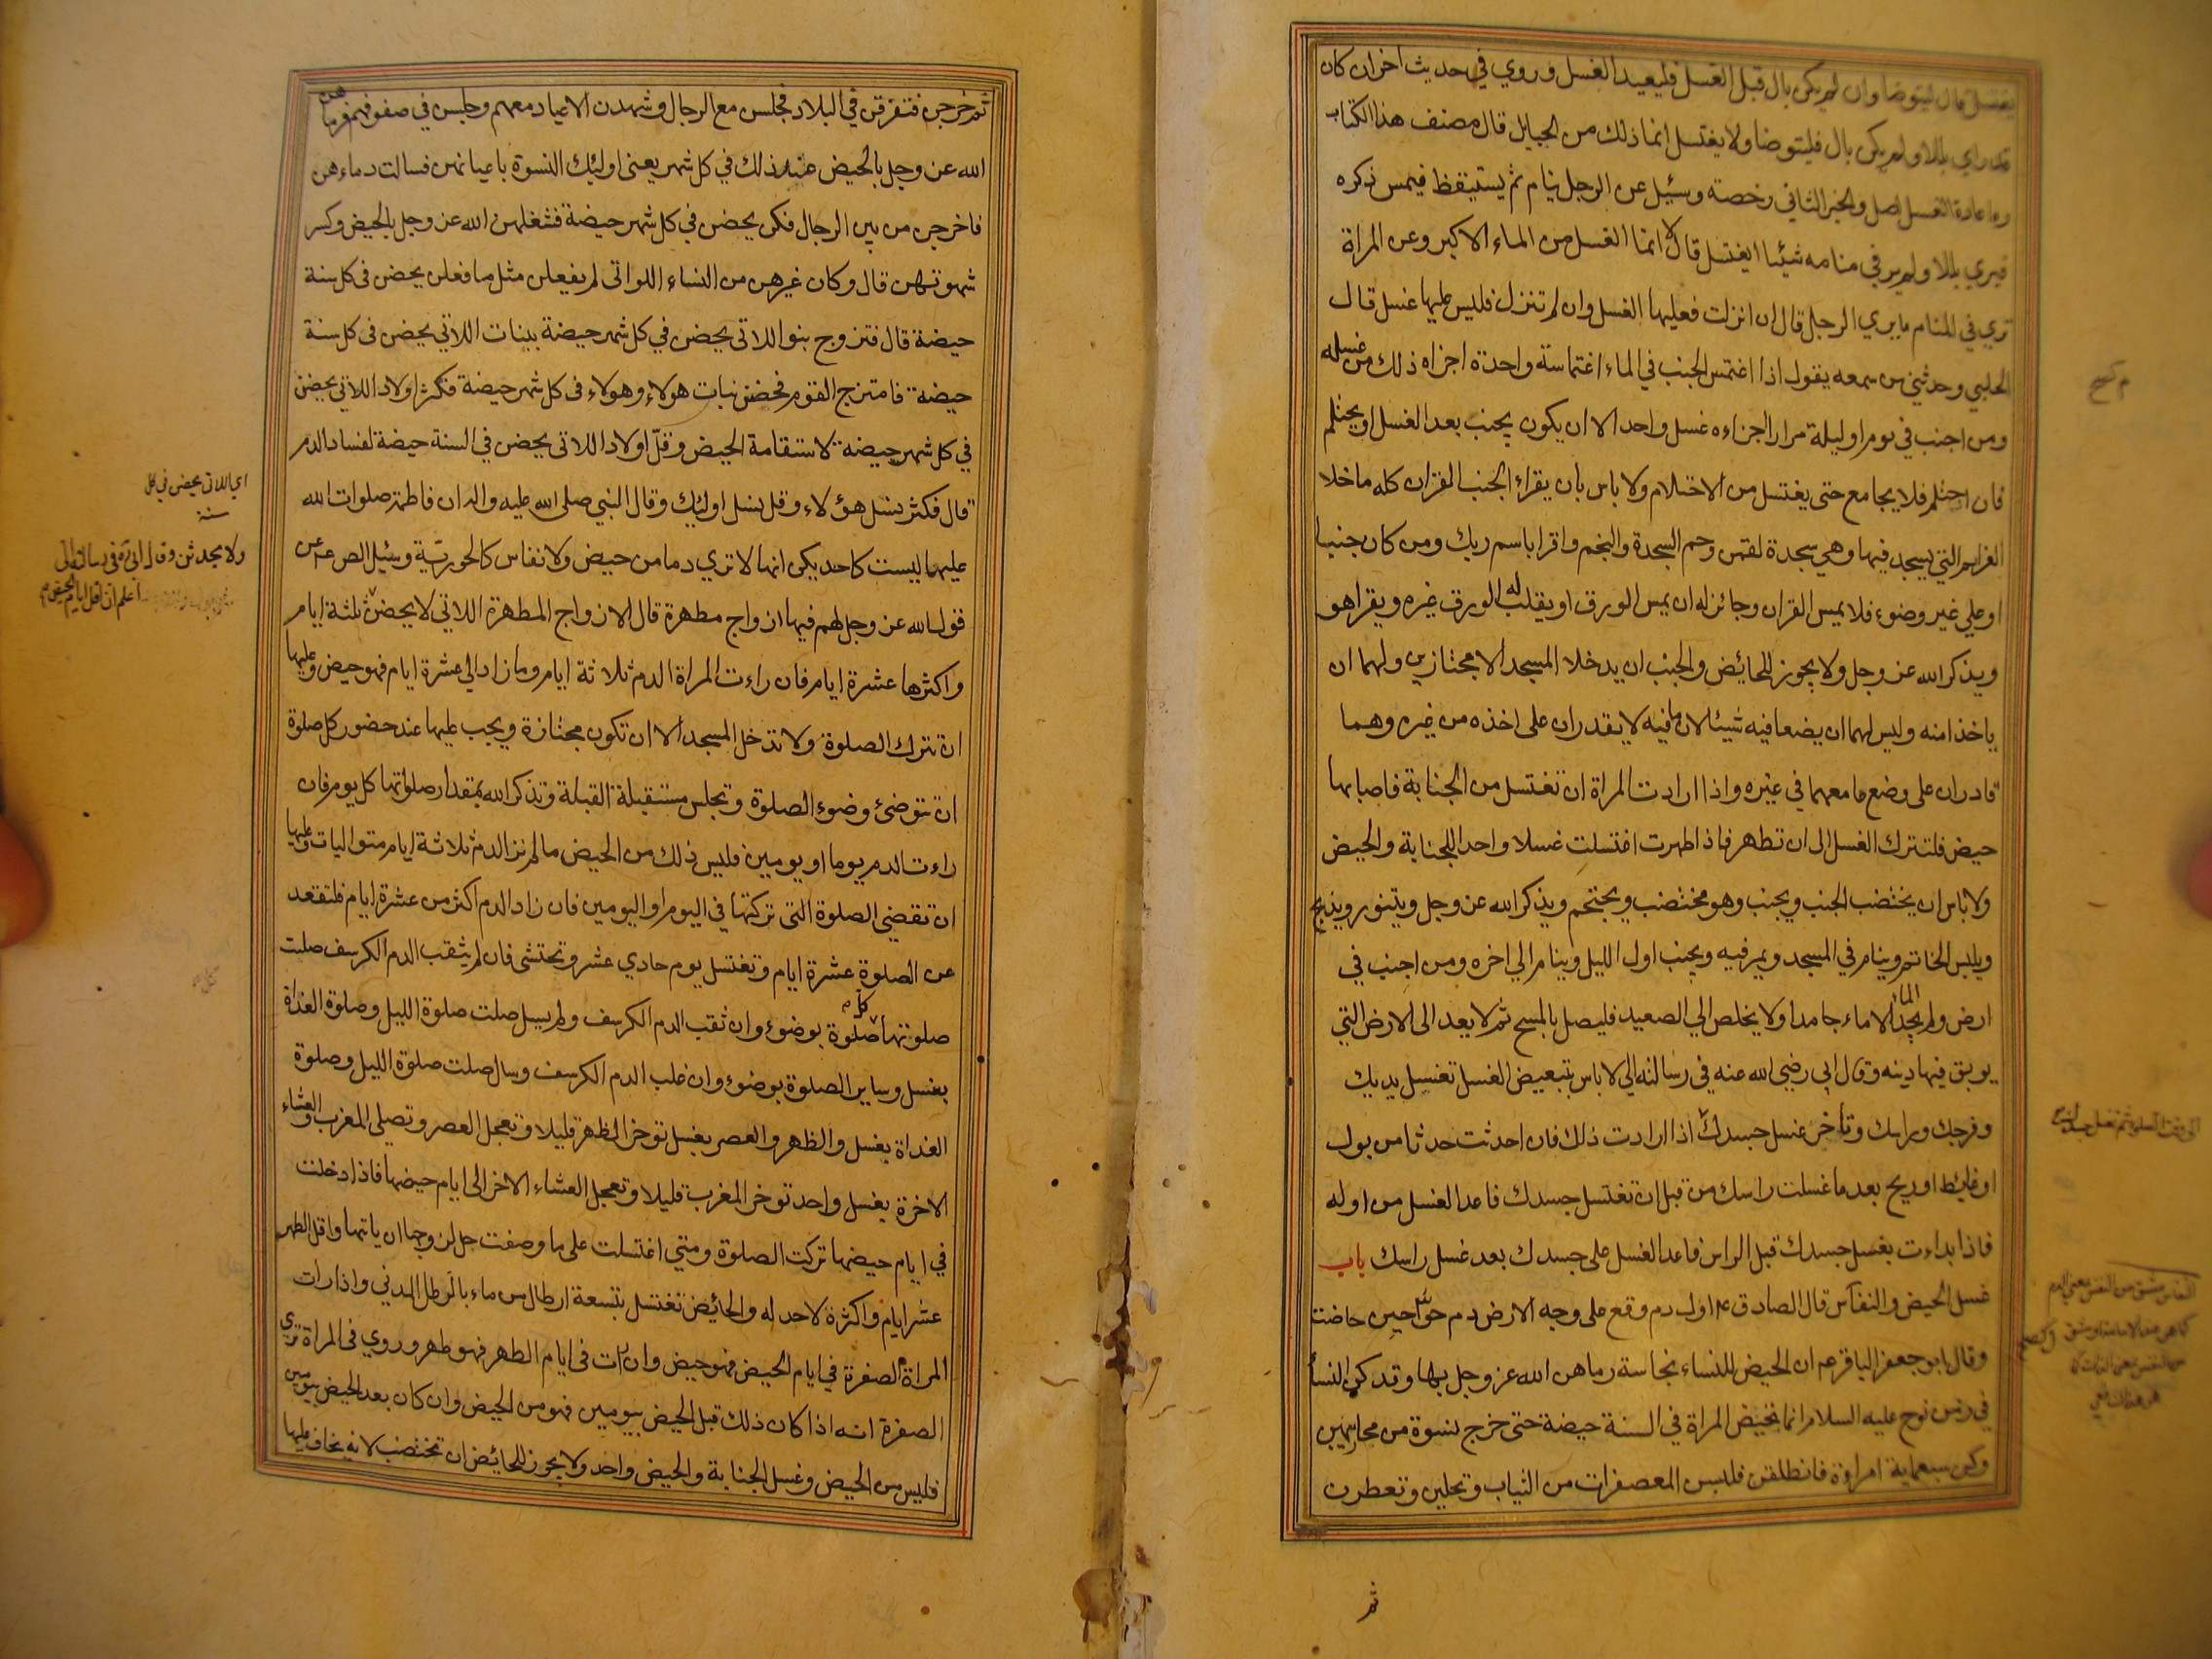 يغتسل قال ليتوضا وان لم يكن بال قبل الغسل فليعيد الغسل وروي في حديث اخر ان كان
قد راي بللا ولم يكن بال فليتوضا ولا يغتسل انما ذلك من الحبايل قال مصنف هذا الكتاب
اعادة الغسل اصل والخبر الثاني رخصة وسئيل عن الرجل ينام ثم يستيقظ فيمس ذكره
فيري بللا ولم ير في منامه شيئا ايغتسل قال لا انما الغسل من الماء الاكبر وعن المراة
تري في المنام ما يري الرجل قال ان انزلت فعليها الغسل وان لم تنزل فليس عليها غسل قال
الحلبي وحدثني من سمعه يقول اذا اغتمس الجنب في الماء اغتماسة واحدة اجزاه ذلك من غسله
ومن اجنب في يوم او ليلة مرارا اجزاءه غسل واحد الا ان يكون يجنب بعد الغسل او يحتلم
فان احتلم فلا يجامع حتى يغتسل من الاحتلام ولا باس بان يقراء الجنب القران كله ما خلا
العزايم التي يسجد فيها وهي سجدة لقمن وحم السجدة والنجم واقرا باسم ربك ومن كان جنبا
او علي غير وضوء فلا يمس القران وجائز له ان يمس الورق او يقلب له الورق غيره ويقرا هو
ويذكر الله عز وجل ولا يجوز للحائض والجنب ان يدخلا المسجد الا مجتازين ولهما ان
ياخذا منه وليس لهما ان يضعا فيه شيئا لان ما فيه لا يقدران على اخذه من غيره وهما
قادران على وضع ما معهما في غيره واذا ارادت المراة ان تغتسل من الجنابة فاصابها
حيض فلتترك الغسل الى ان تطهر فاذا طهرت اغتسلت غسلا واحدا للجنابة والحيض
ولا باس ان يختضب الجنب ويجنب وهو مختضب ويحتجم ويذكر الله عز وجل ويتنور ويذبح
ويلبس الخاتم وينام في المسجد ويمر فيه ويجنب اول الليل وينام الي اخره ومن اجنب في
ارض ولم يجد الماء الا ماء جامدا ولا يخلص الي الصعيد فليصل بالمسح ثم لا يعد الى الارض التي
يوبق فيها دينه وقال ابي رضي الله عنه في رسالته الي لا باس بتبعيض الغسل تغسل يديك
وفرجك وراسك وتأخر غسل جسدك اذا ارادت ذلك فان احدثت حدثا من بول
او غايط او ريح بعد ما غسلت راسك من قبل ان تغتسل جسدك فاعد الغسل من اوله
فاذا بداءت بغسل جسدك قبل الراس فاعد الغسل على جسدك بعد غسل راسك باب
غسل الحيض والنفاس قال الصادق ع اول دم وقع على وجه الارض دم حوا حين حاضت
وقال ابو جعفر الباقر عم ان الحيض للنساء نجاسة رماهن الله عز وجل بها وقد كن النسأ
في زمن نوح عليه السلام انما تحيض المراة في السنة حيضة حتى خرج نسوة من محاربهن
وكن سبعماية امراة فانطلقن فلبسن المعصفرات من الثياب وتحلين وتعطرن
ثم
ثم خرجن فتفرقن في البلاد فجلسن مع الرجال وشهدن الاعياد معهم وجلسن في صفوفهم فرماهن
الله عز وجل بالحيض عند ذلك في كل شهر يعني اوليك النسوة باعيانهن فسالت دماءهن
فاخرجن من بين الرجال فكن يحضن في كل شهر حيضة فشغلهن الله عز وجل بالحيض وكسر
شهوتهن قال وكان غيرهن من النساء اللواتي لم يفعلن مثل ما فعلن يحضن في كل سنة
حيضة قال فتزوج بنو اللاتي يحضن في كل شهر حيضة ببنات اللاتي يحضن في كل سنة
حيضة فامتزج القوم فحضن بنات هولاء وهولاء في كل شهر حيضة فكثر اولاد اللاتي يحضن
في كل شهر حيضة لاستقامة الحيض وقل اولاد اللاتي يحضن في السنة حيضة لفساد الدم
قال فكثر نسل هؤلاء وقل نسل اوليك وقال النبي صلى الله عليه واله ان فاطمة صلوات الله
عليها ليست كاحد يكن انها لا تري دما من حيض ولا نفاس كالحورية وسئيل الص عم عن
قول الله عز وجل لهم فيها ازواج مطهرة قال الازواج المطهرة اللاتي لا يحضن ثلثة ايام
واكثرها عشرة ايام فان راءت المراة الدم ثلاثة ايام وما زاد الي عشرة ايام فهو حيض وعليها
ان تترك الصلوة ولا تدخل المسجد الا ان تكون مجتازة ويجب عليها عند حضور كل صلوة
ان تتوضئ وضوء الصلوة وتجلس مستقبلة القبلة وتذكر الله بمقدار صلواتها كل يوم فان
راءت الدم يوما او يومين فليس ذلك من الحيض ما لم تر الدم ثلاثة ايام متواليات وعليها
ان تقضي الصلوة التي تركتها في اليوم او اليومين فان زاد الدم اكثر من عشرة ايام فلتقعد
عن الصلوة عشرة ايام وتغتسل يوم حادي عشر وتحتشي فان لم يثقب الدم الكرسف صلت
صلوتها كل صلوة بوضوء وان ثقب الدم الكرسف ولم يسل صلت صلوة الليل وصلوة الغداة
بغسل وساير الصلوة بوضوء وان غلب الدم الكرسف وسال صلت صلوة الليل وصلوة
الغداة بغسل والظهر والعصر بغسل توخر الظهر قليلا وتعجل العصر وتصلي المغرب والعشاء
الاخرة بغسل واحد توخر المغرب قليلا وتعجل العشاء الاخر الى ايام حيضها فاذا دخلت
في ايام حيضها تركت الصلوة ومتي اغتسلت على ما وصفت حل لزوجها ان ياتيها واقل الطهر
عشر ايام واكثره لا حد له والحائض تغتسل بتسعة ارطال من ماء بالرطل المدني واذا رات
المراة الصفرة في ايام الحيض فهو حيض وان رات في ايام الطهر فهو طهر وروي في المراة تري
الصفرة انه اذا كان ذلك قبل الحيض بيومين فهو من الحيض وان كان بعد الحيض بيومين
فليس من الحيض وغسل الجنابة والحيض واحد ولا يجوز للحائض ان تختضب لانه يخاف عليها
اي اللاتي يحضن في كل
سنة
ولا يحدثن وقال ابي ره في رسالته الي
اعلم ان اقل ايام الحيض